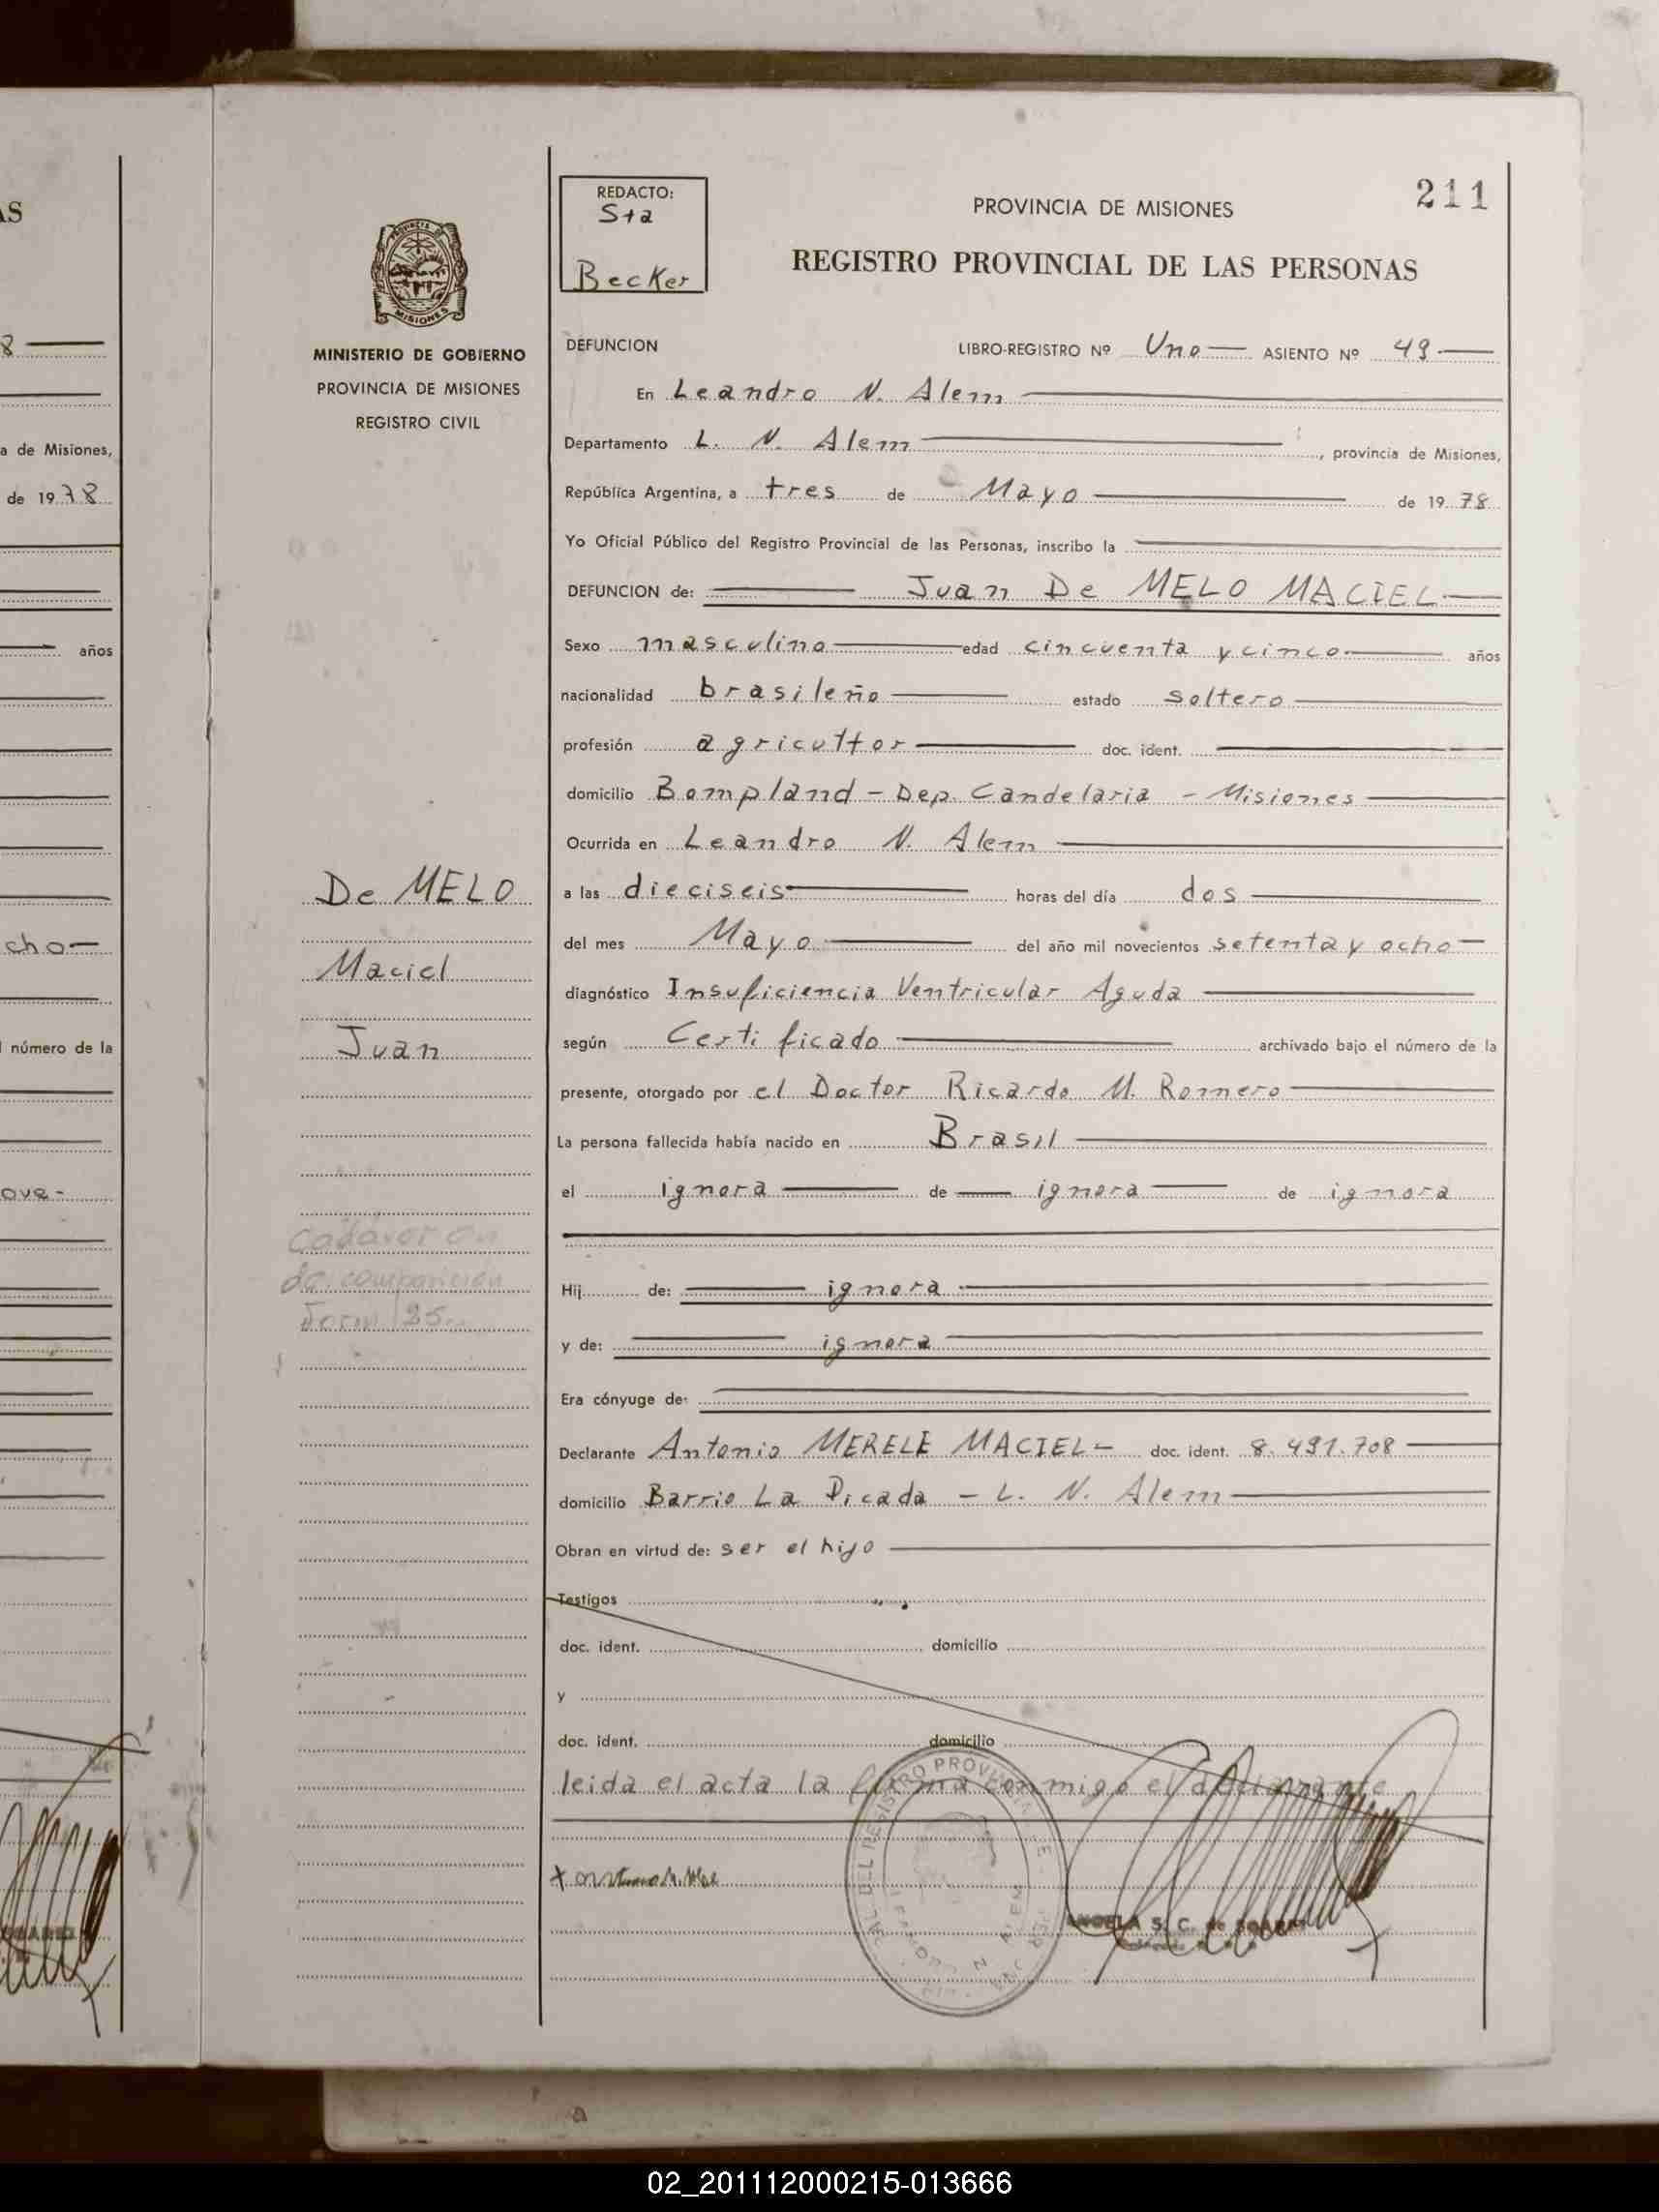 AS
8
a de Misiones,
de 1978
años
cho
l número de la
ove-
MINISTERIO DE GOBIERNO
PROVINCIA DE MISIONES
REGISTRO CIVIL
De MELO
Maciel
Juan
REDACTO:
Sta
Becker
PROVINCIA DE MISIONES
211
REGISTRO PROVINCIAL DE LAS PERSONAS
DEFUNCION LIBRO-REGISTRO Nº Uno ASIENTO Nº 49
En Leandro N. Alem
Departamento L. N. Alem, provincia de Misiones,
República Argentina, a tres de Mayo de 1978
Yo Oficial Público del Registro Provincial de las Personas, inscribo la
DEFUNCION de: Juan De MELO MACIEL
Sexo masculino edad cincuenta y cinco años
nacionalidad brasileño estado soltero
profesión agricultor doc. ident.
domicilio Bompland - Dep. Candelaria - Misiones
Ocurrida en Leandro N. Alem
a las dieciseis horas del día dos
del mes Mayo del año mil novecientos setenta y ocho
diagnóstico Insuficiencia Ventricular Aguda
según Certificado archivado bajo el número de la
presente, otorgado por el Doctor Ricardo M. Romero
La persona fallecida había nacido en Brasil
el ignora de ignora de ignora
Hij de: ignora
y de: ignora
Era cónyuge de:
Declarante Antonio MERELE MACIEL - doc. ident. 8.491.708
domicilio Barrio La Picada - L. N. Alem
Obran en virtud de: ser el hijo
Testigos
doc. ident. domicilio
y
doc. ident. domicilio
leida el acta la firma conmigo el declarante
ANGELA S. C. de SOAREZ
02_201112000215-013666